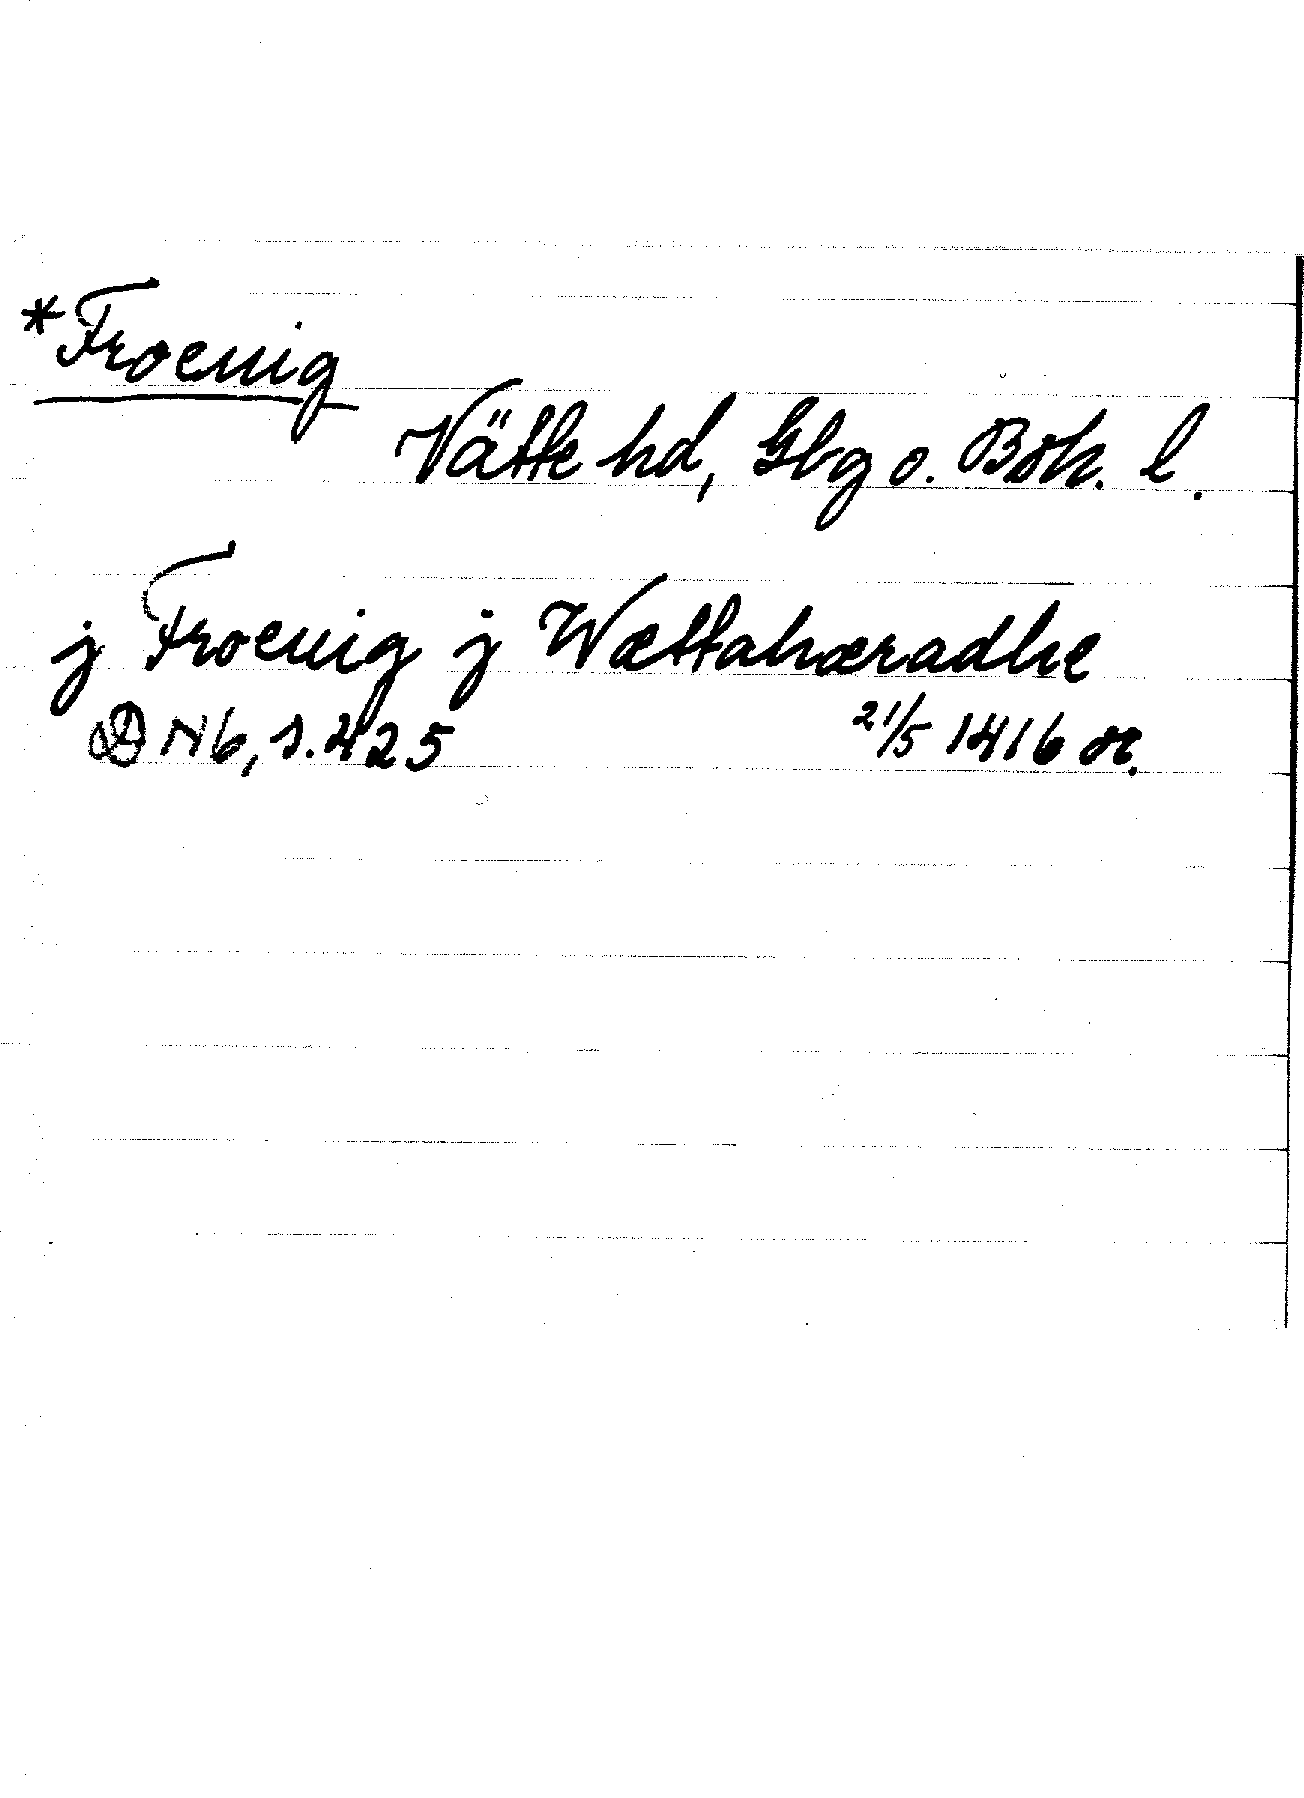 *Froenig
Vätte hd, Gbg o. Boh. l.
j Froenig j Wættahæradhe
DN 6, s. 425 21/5 1416 or.